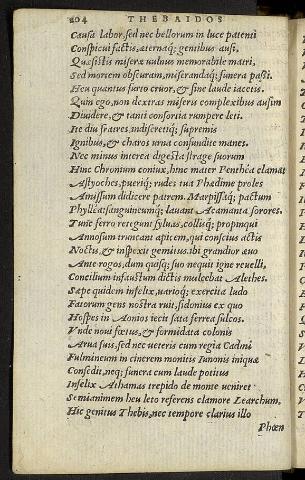 204 THEBAIDOS
Causa labor, sed nec bellorum in luce patenti
Conspicui factis, æternaq; gentibus ausi,
Quæsistis miseræ uulnus memorabile matri,
Sed mortem obscuram, miserandaq; funera passi.
Heu quantus furto cruor, & sine laude iacetis.
Quin ego, non dextras miseris complexibus ausim
Diuidere, & tanti consortia rumpere leti.
Ite diu fratres, indiscretiq; supremis
Ignibus, & charos urna confundite manes.
Nec minus interea digesta strage suorum
Hinc Chromium coniux, hinc mater Penthea clamat
Astyoches, pueriq; rudes tua Phædime proles
Amissum didicere patrem. Marpissaq; pactum
Phyllea: sanguineumq; lauant Acamanta sorores.
Tunc ferro reregunt syluas, collisq; propinqui
Annosum truncant apicem, qui conscius actis
Noctis, & inspexit gemitus. ibi grandior æuo
Ante rogos, dum quisq; suo nequit igne reuelli,
Concilium infaustum dictis mulcebat Alethes.
Sæpe quidem infelix, uarioq; exercita ludo
Fatorum gens nostra ruit, sidonius ex quo
Hospes in Aonios iecit sata ferrea sulcos.
Vnde noui fœtus, & formidata colonis
Arua suis, sed nec ueteris cum regia Cadmi
Fulmineum in cinerem monitis Iunonis iniquæ
Consedit, neq; funera cum laude potitus
Infelix Athamas trepido de monte ueniret
Semianimem heu leto referens clamore Learchum,
Hic genitus Thebis, nec tempore clarius illo
Phœn